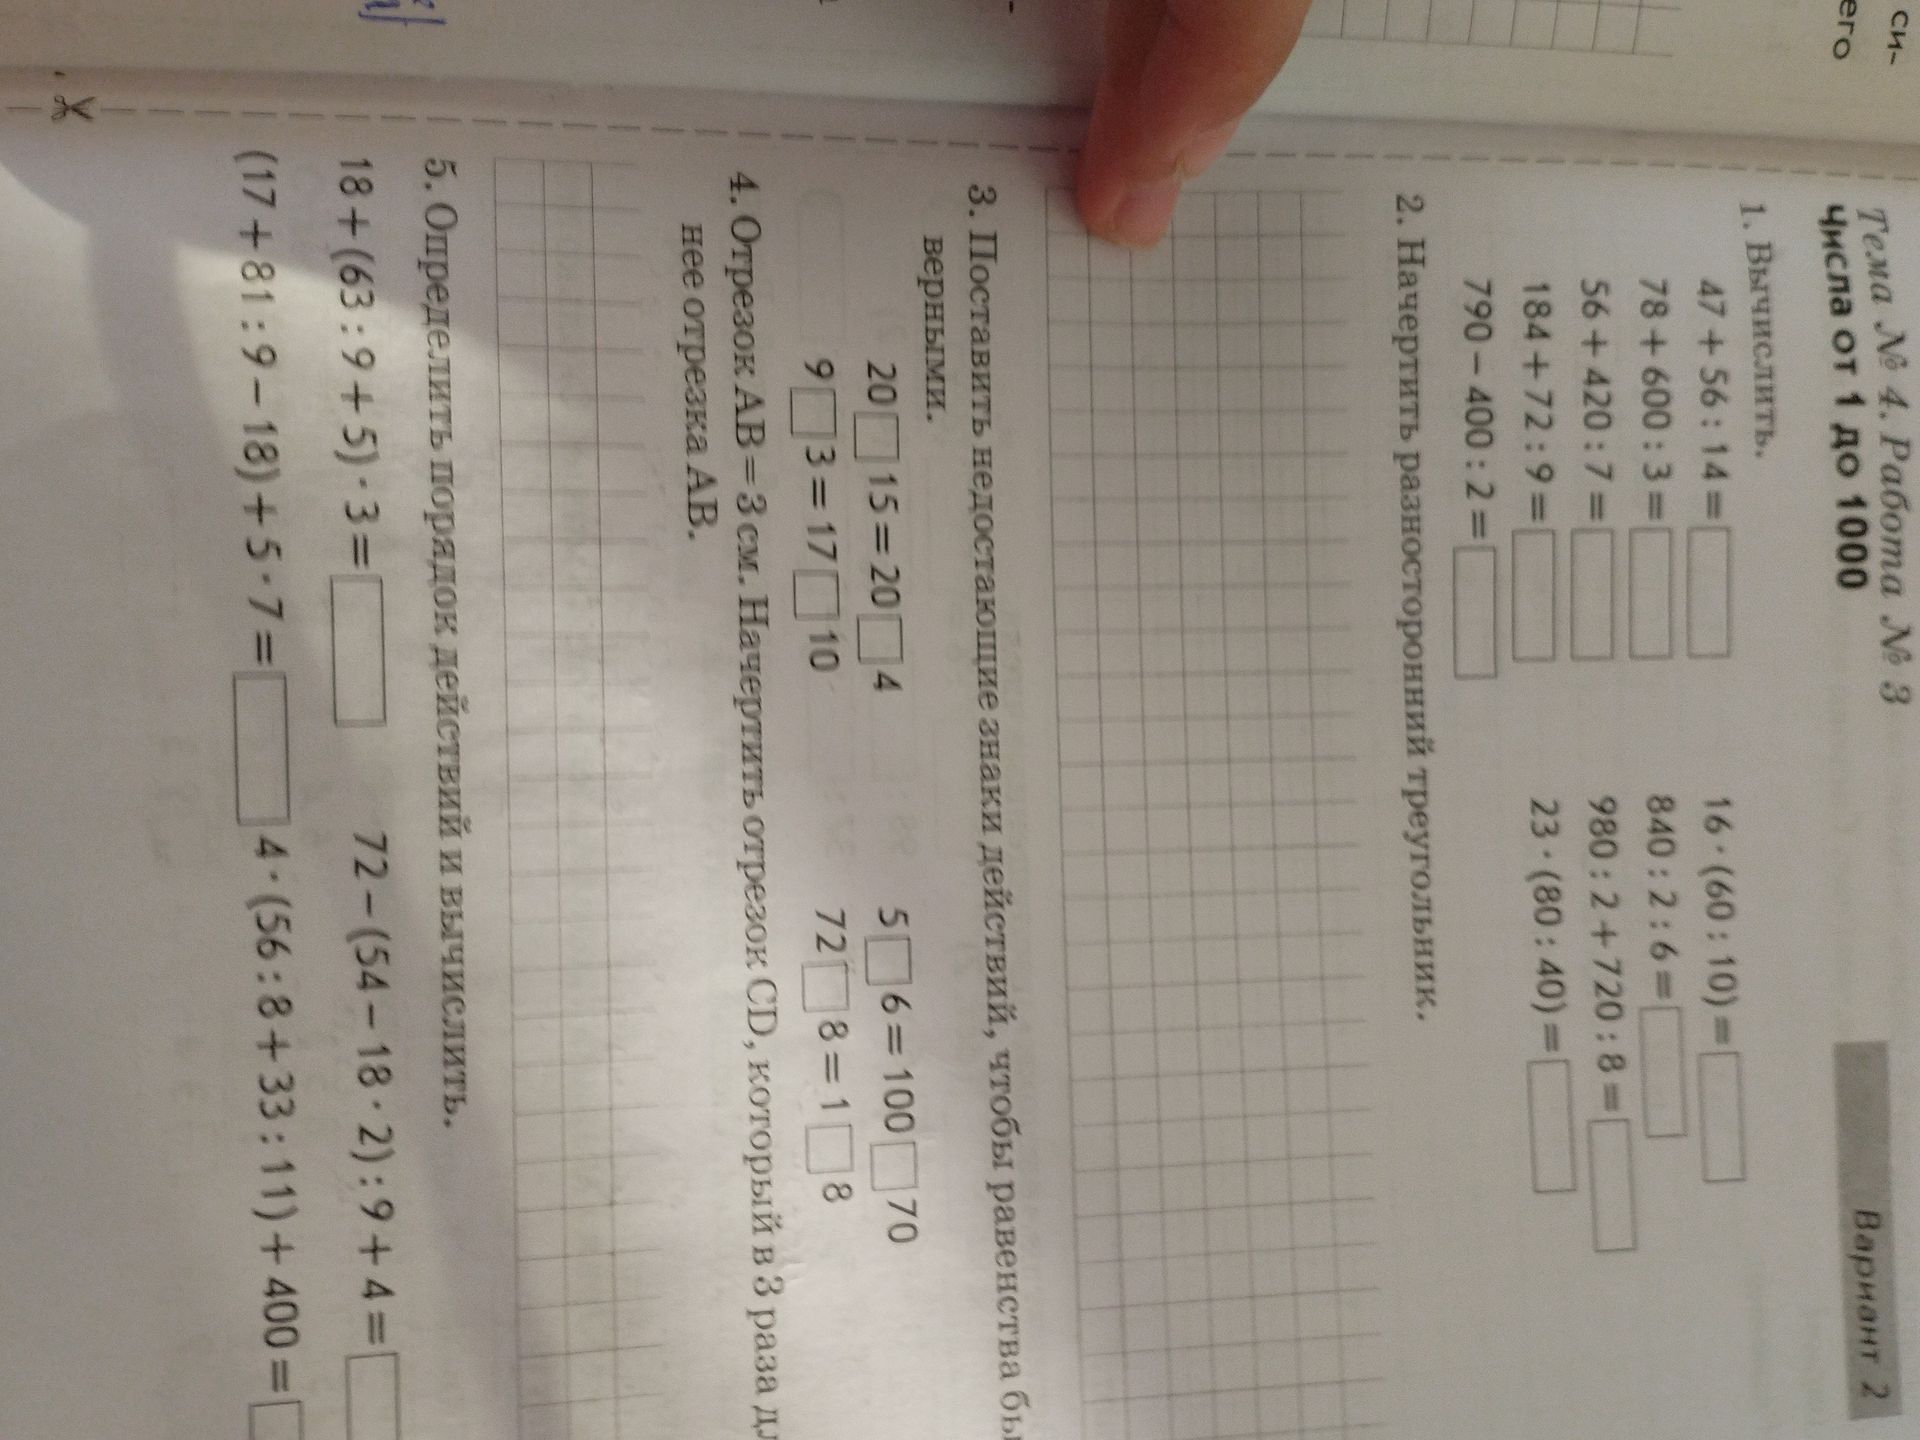 си-
его
Тема № 4. Работа № 3
Числа от 1 до 1000
Вариант 2
1. Вычислить.
47 + 56 : 14 =
16 · (60 : 10) =
78 + 600 : 3 =
840 : 2 : 6 =
56 + 420 : 7 =
980 : 2 + 720 : 8 =
184 + 72 : 9 =
23 · (80 : 40) =
790 − 400 : 2 =
2. Начертить разносторонний треугольник.
3. Поставить недостающие знаки действий, чтобы равенства бы
верными.
20 □ 15 = 20 □ 4
5 □ 6 = 100 □ 70
9 □ 3 = 17 □ 10
72 □ 8 = 1 □ 8
4. Отрезок AB = 3 см. Начертить отрезок CD, который в 3 раза дл
нее отрезка AB.
5. Определить порядок действий и вычислить.
18 + (63 : 9 + 5) · 3 =
72 − (54 − 18 · 2) : 9 + 4 =
(17 + 81 : 9 − 18) + 5 · 7 =
4 · (56 : 8 + 33 : 11) + 400 =